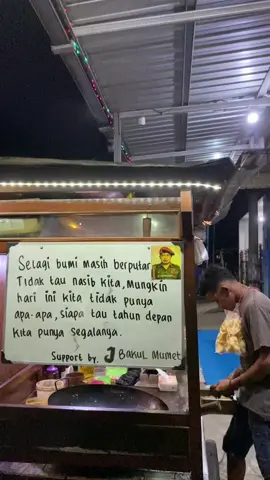 Selagi bumi masih berputar
Tidak tau nasib kita, Mungkin
hari ini kita tidak punya
apa-apa, siapa tau tahun depan
kita punya segalanya.
Support by. J BAKUL MUMET